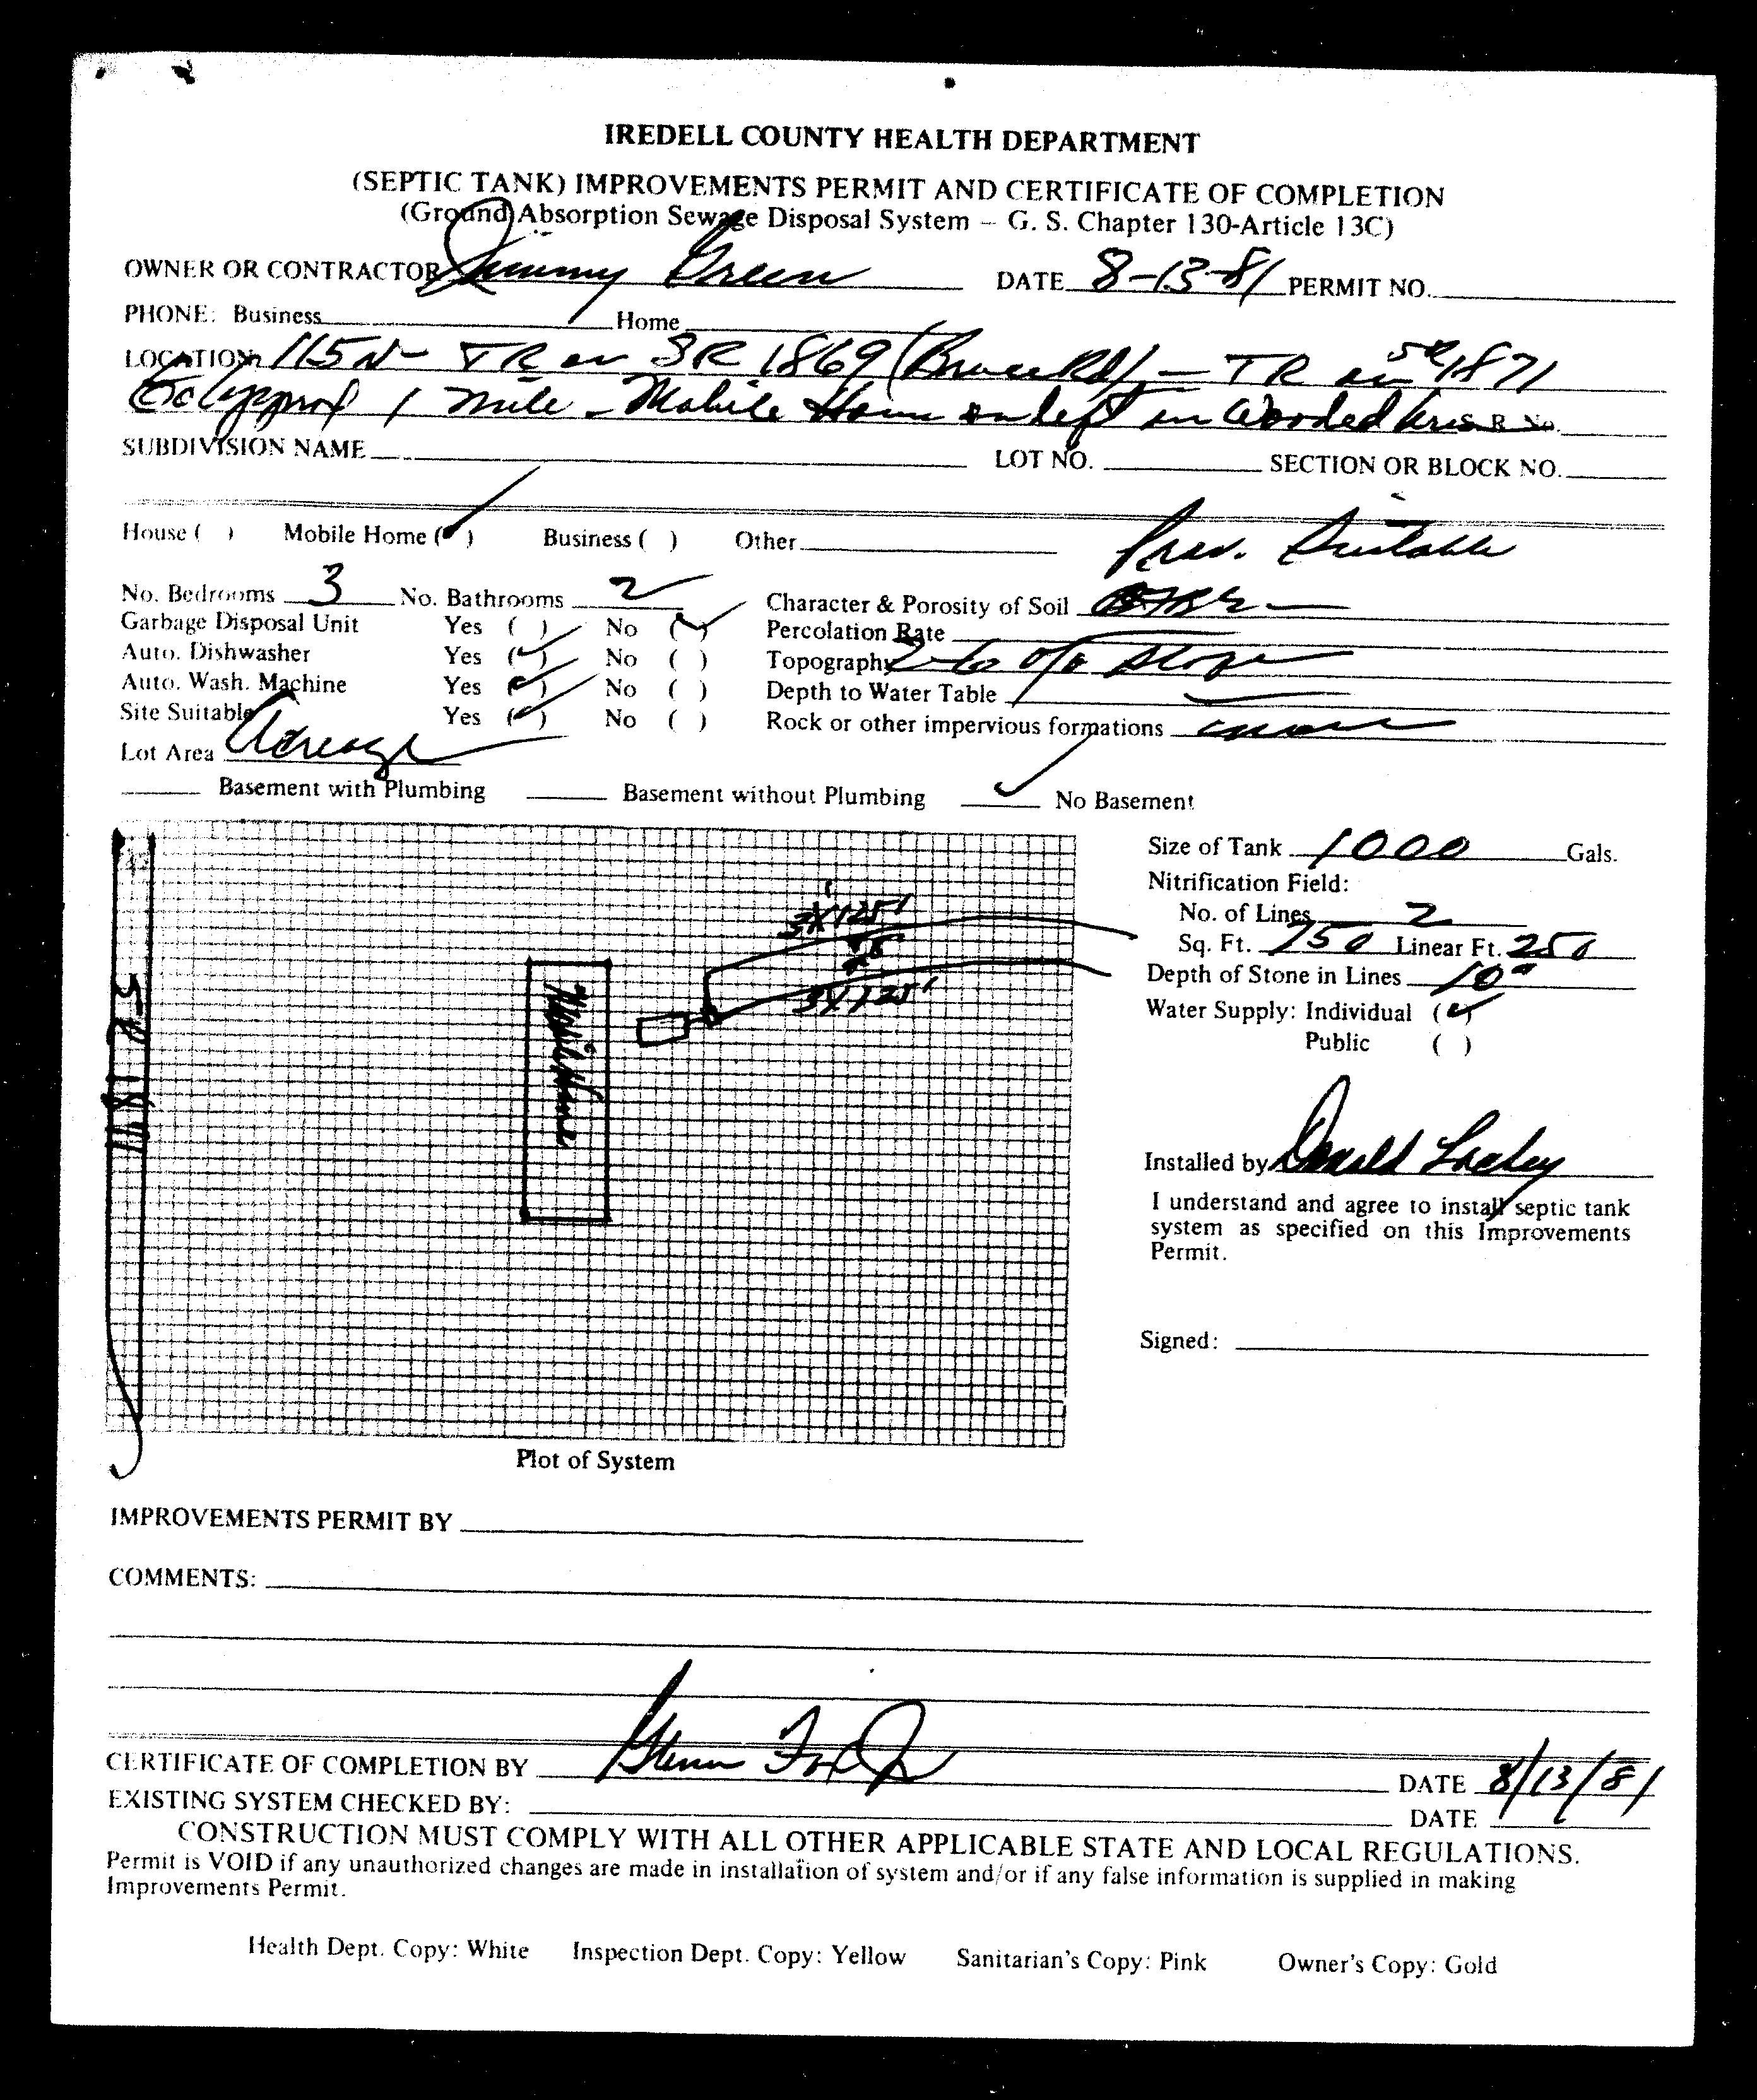 IREDELL COUNTY HEALTH DEPARTMENT
(SEPTIC TANK) IMPROVEMENTS PERMIT AND CERTIFICATE OF COMPLETION
(Ground Absorption Sewage Disposal System – G. S. Chapter 130-Article 13C)
OWNER OR CONTRACTOR Jimmy Green DATE 8-13-81 PERMIT NO.
PHONE: Business Home
LOCATION 115 N - TR on SR 1869 (Bruce Rd) - TR on SR 1871
1 mile - Mobile Home on left in Wooded Area S. R. No.
SUBDIVISION NAME LOT NO. SECTION OR BLOCK NO.
House ( ) Mobile Home (✓) Business ( ) Other
Prov. Suitable
No. Bedrooms 3 No. Bathrooms 2 Character & Porosity of Soil
Garbage Disposal Unit Yes ( ) No (✓) Percolation Rate
Auto. Dishwasher Yes (✓) No ( ) Topography slope
Auto. Wash. Machine Yes (✓) No ( ) Depth to Water Table
Site Suitable Yes (✓) No ( ) Rock or other impervious formations none
Lot Area Acreage
Basement with Plumbing Basement without Plumbing ✓ No Basement
Size of Tank 1000 Gals.
Nitrification Field:
No. of Lines 2
Sq. Ft. 750 Linear Ft. 250
Depth of Stone in Lines 10"
Water Supply: Individual (✓)
Public ( )
3X125'
3X125'
Mobile Home
SR 1871
Installed by Donald Lackey
I understand and agree to install septic tank
system as specified on this Improvements
Permit.
Signed:
Plot of System
IMPROVEMENTS PERMIT BY
COMMENTS:
CERTIFICATE OF COMPLETION BY Glenn Fox Jr DATE 8/13/81
EXISTING SYSTEM CHECKED BY: DATE
CONSTRUCTION MUST COMPLY WITH ALL OTHER APPLICABLE STATE AND LOCAL REGULATIONS.
Permit is VOID if any unauthorized changes are made in installation of system and/or if any false information is supplied in making
Improvements Permit.
Health Dept. Copy: White Inspection Dept. Copy: Yellow Sanitarian's Copy: Pink Owner's Copy: Gold